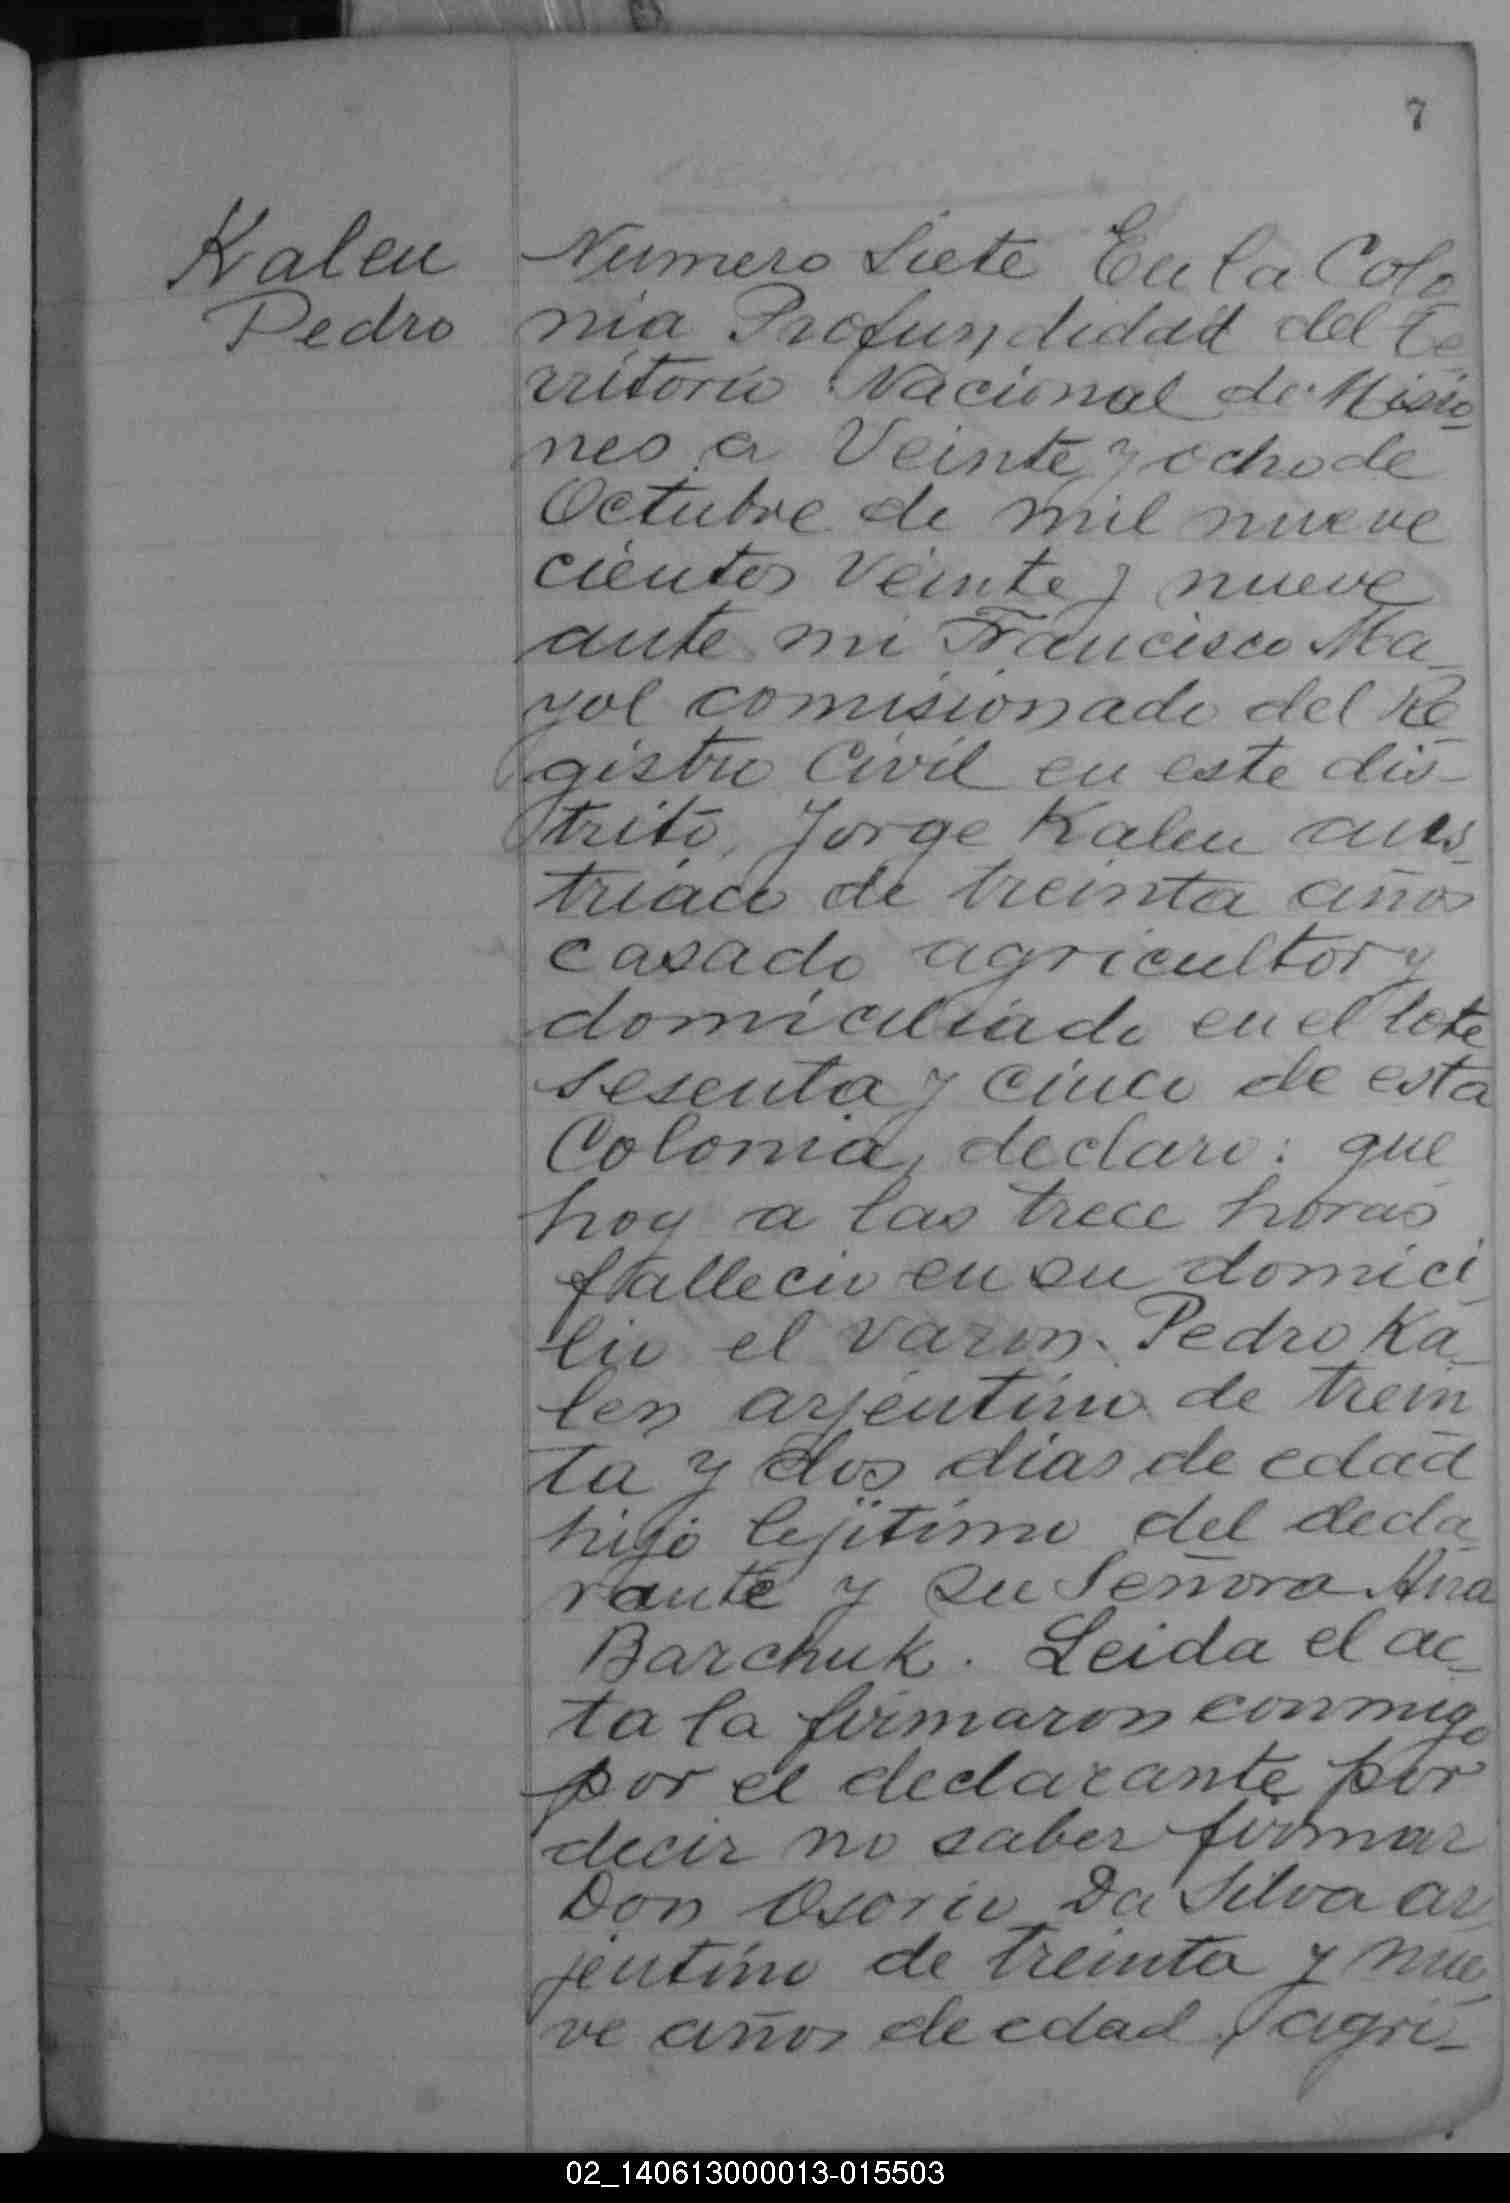 7
Kalen
Pedro
Numero Siete En la Colo
nia Profundidad del Te
rritorio Nacional de Misio
nes a Veinte y ocho de
Octubre de mil nueve
cientos Veinte y nueve
ante mi Francisco Ma-
yol comisionado del Re
gistro Civil en este dis-
trito, Jorge Kalen aus-
triaco de treinta años
casado agricultor y
domiciliado en el lote
sesenta y cinco de esta
Colonia, declaro: que
hoy a las trece horas
fallecio en su domici
lio el varon Pedro Ka-
len arjentino de trein
ta y dos dias de edad
hijo lejitimo del decla
rante y su Señora Ana
Barchuk. Leida el ac-
ta la firmaron conmigo
por el declarante por
decir no saber firmar
Don Osorio Da Silva ar
jentino de treinta y nue
ve años de edad, agri-
02_140613000013-015503